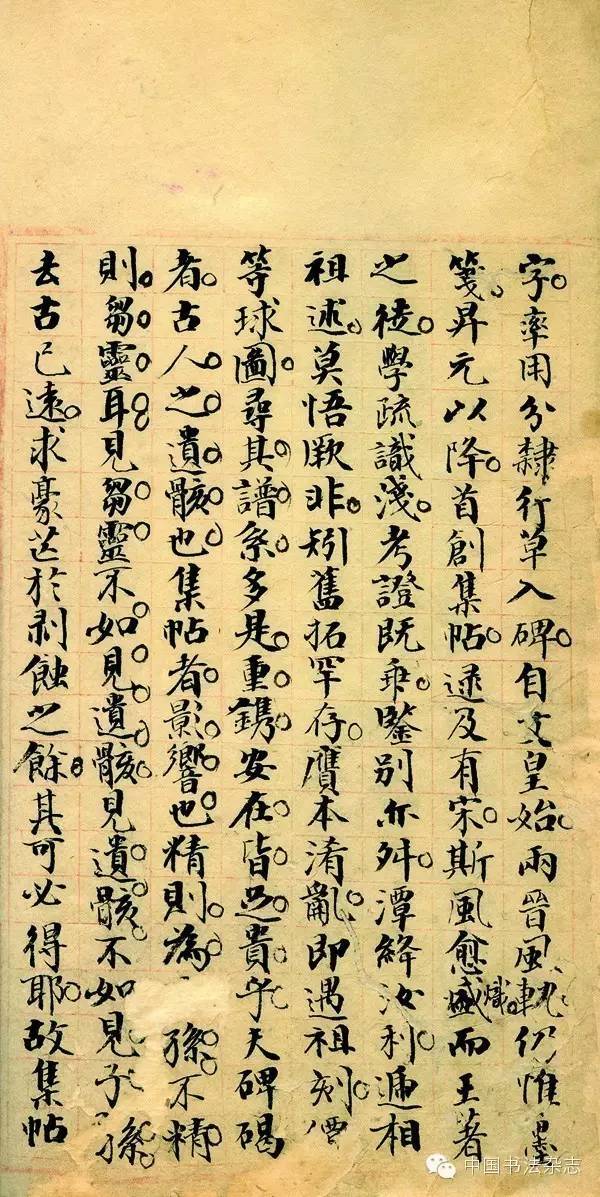 字率用分隸行草入碑自文皇始兩晉風軌仍惟
箋昇元以降首創集帖逮及有宋斯風愈盛熾而王著
之徒學疏識淺考證既乖鑒別亦舛潭絳汝利遞相
祖述莫悟厥非矧舊拓罕存贋本淆亂即遇祖刻價
等球圖尋其譜系多是重鐫安在皆足貴乎夫碑碣
者古人之遺骸也集帖者影響也精則為孫不精
則芻靈耳見芻靈不如見遺骸見遺骸不如見子孫
去古已遠求豪芒於剥蝕之餘其可必得耶故集帖
中国书法杂志